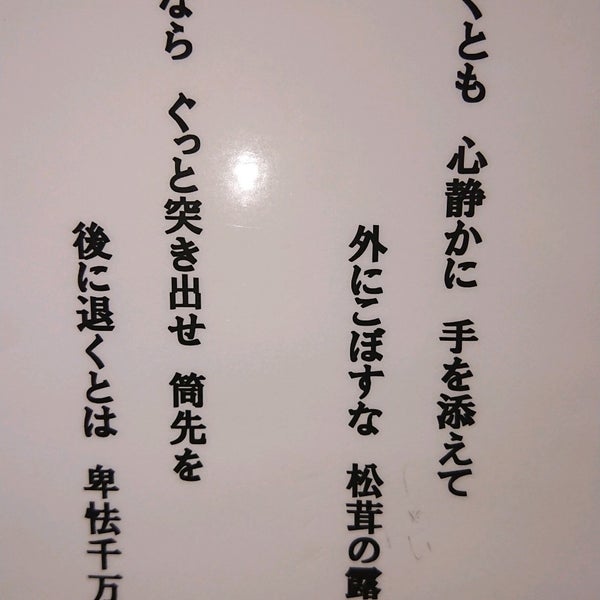 くとも 心静かに 手を添えて
外にこぼすな 松茸の露
なら ぐっと突き出せ 筒先を
後に退くとは 卑怯千万